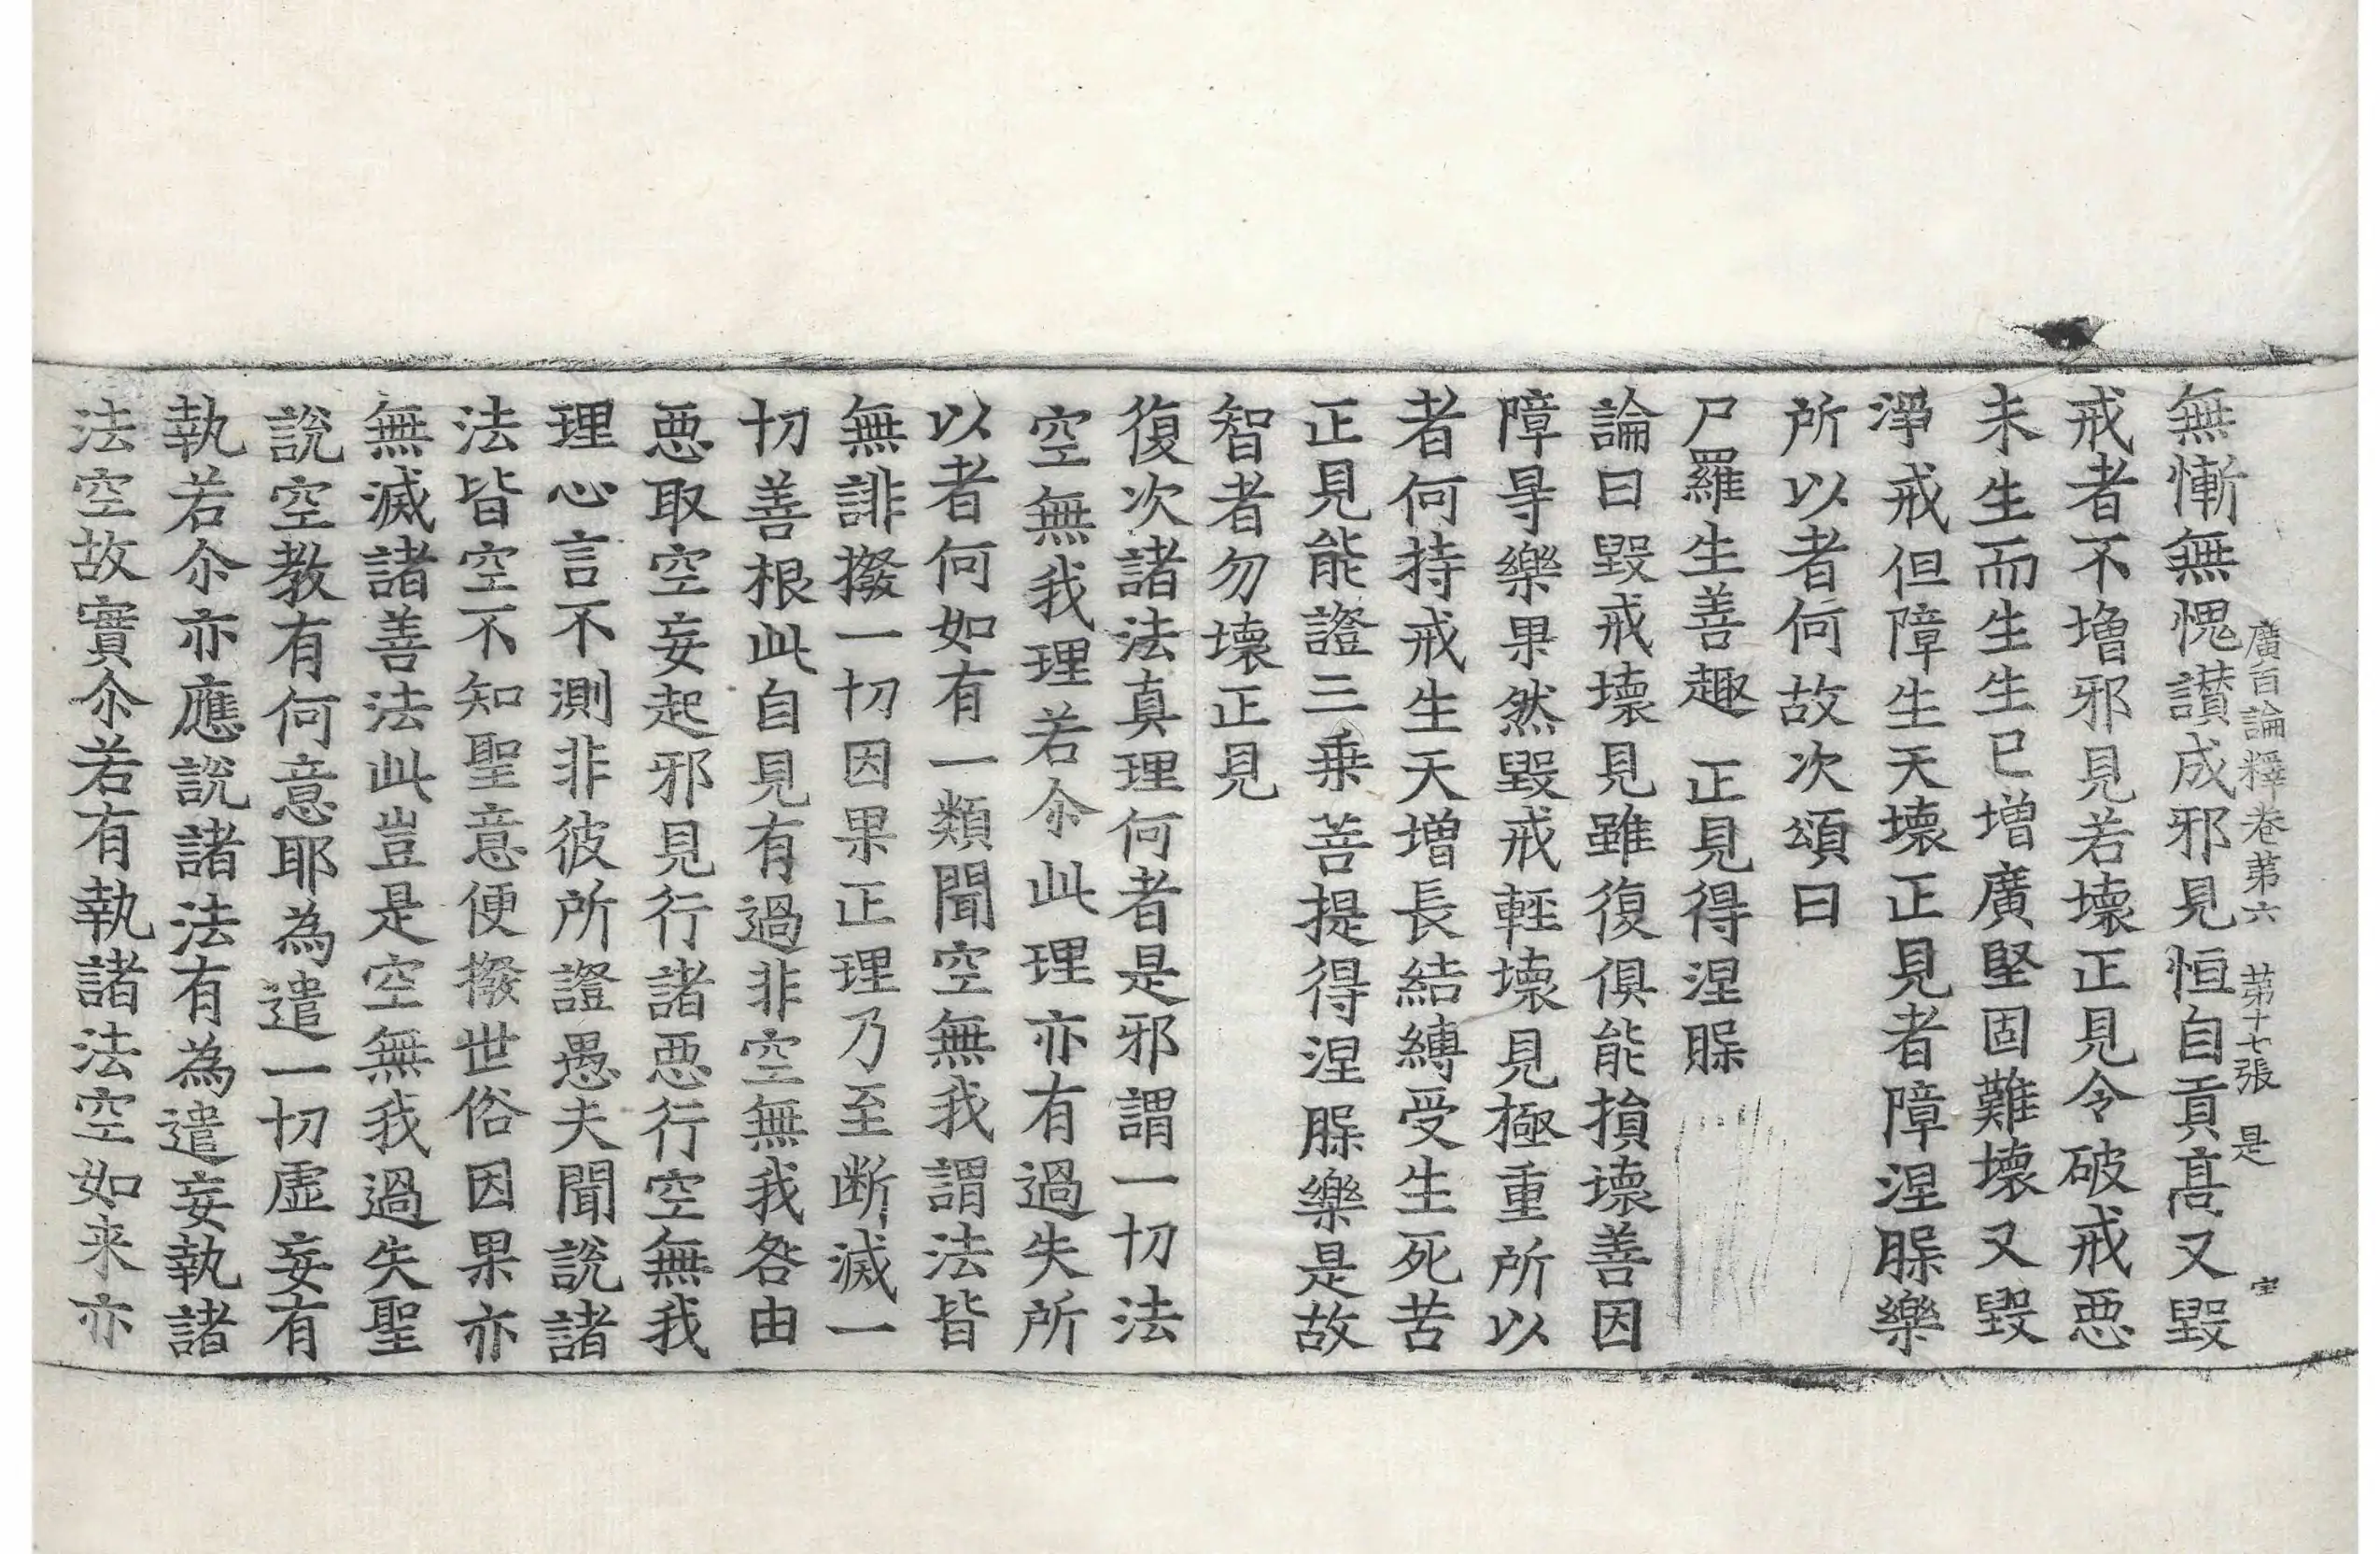 廣百論釋卷第六　第十七張　是
無慚無愧讃成邪見恒自貢髙又毀
戒者不增邪見若壞正見令破戒惡
未生而生生已增廣堅固難壞又毀
淨戒但障生天壞正見者障涅槃樂
所以者何故次頌曰
尸羅生善趣　正見得涅槃
論曰毀戒壞見雖復俱能損壞善因
障㝵樂果然毀戒輕壞見極重所以
者何持戒生天增長結縛受生死苦
正見能證三乗菩提得涅槃樂是故
智者勿壞正見
復次諸法真理何者是邪謂一切法
空無我理若尒此理亦有過失所
以者何如有一類聞空無我謂法皆
無誹撥一切因果正理乃至断滅一
切善根此自見有過非空無我咎由
惡取空妄起邪見行諸惡行空無我
理心言不測非彼所證愚夫聞說諸
法皆空不知聖意便撥世俗因果亦
無滅諸善法此豈是空無我過失聖
說空教有何意耶為遣一切虛妄有
執若尒亦應說諸法有為遣妄執諸
法空故實尒若有執諸法空如来亦